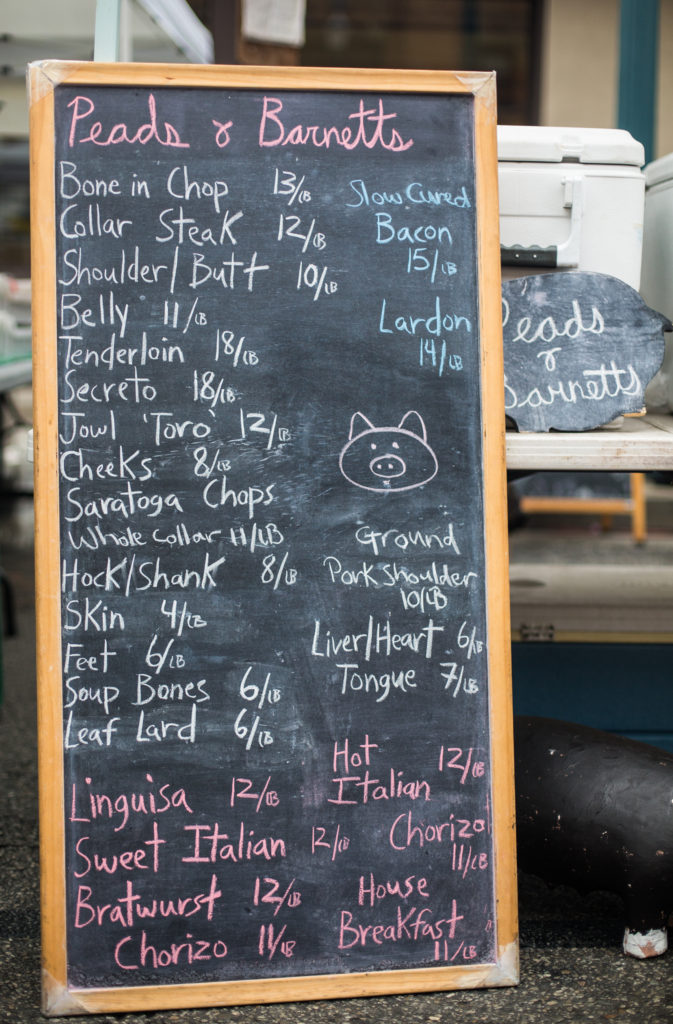 Peads & Barnetts
Bone in Chop 13/LB
Collar Steak 12/LB
Shoulder/Butt 10/LB
Belly 11/LB
Tenderloin 18/LB
Secreto 18/LB
Jowl 'Toro' 12/LB
Cheeks 8/LB
Saratoga Chops
Whole Collar 11/LB
Hock/Shank 8/LB
Skin 4/LB
Feet 6/LB
Soup Bones 6/LB
Leaf Lard 6/LB
Slow Cured
Bacon
15/LB
Lardon
14/LB
Ground
Pork Shoulder
10/LB
Liver/Heart 6/LB
Tongue 7/LB
Linguisa 12/LB
Sweet Italian 12/LB
Bratwurst 12/LB
Chorizo 11/LB
Hot
Italian 12/LB
Chorizo
11/LB
House
Breakfast
11/LB
Peads
&
Barnetts